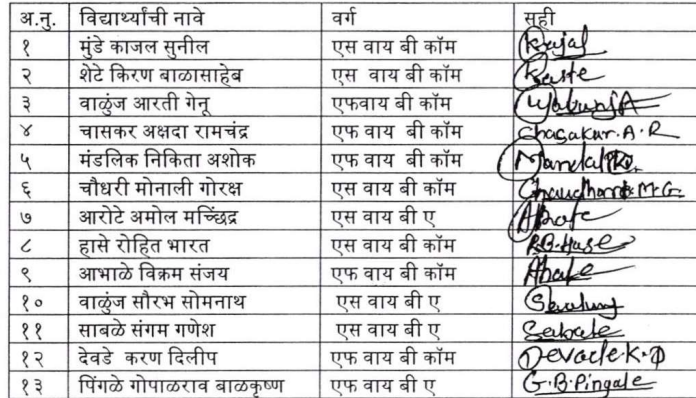 अ.नु. विद्यार्थ्यांची नावे वर्ग सही
१ मुंडे काजल सुनील एस वाय बी कॉम Kajal
२ शेटे किरण बाळासाहेब एस वाय बी कॉम
३ वाळुंज आरती गेनू एफवाय बी कॉम
४ चासकर अक्षदा रामचंद्र एफ वाय बी कॉम Chasakar.A.R
५ मंडलिक निकिता अशोक एफ वाय बी कॉम
६ चौधरी मोनाली गोरक्ष एस वाय बी कॉम
७ आरोटे अमोल मच्छिंद्र एस वाय बी ए
८ हासे रोहित भारत एस वाय बी कॉम R.B.Hase
९ आभाळे विक्रम संजय एफ वाय बी कॉम
१० वाळुंज सौरभ सोमनाथ एस वाय बी ए
११ साबळे संगम गणेश एस वाय बी ए Sabale
१२ देवडे करण दिलीप एफ वाय बी कॉम Devade.K.D
१३ पिंगळे गोपाळराव बाळकृष्ण एफ वाय बी ए G.B.Pingale